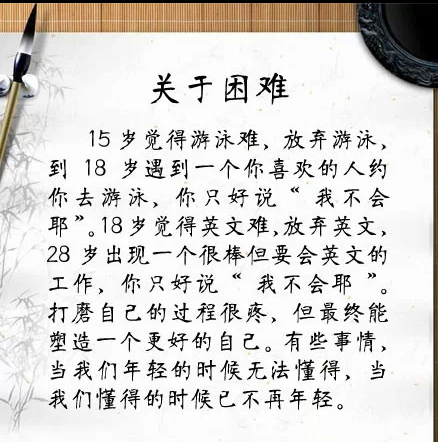 关于困难
15岁觉得游泳难，放弃游泳，
到 18 岁遇到一个你喜欢的人约
你去游泳，你只好说“ 我不会
耶”。18岁觉得英文难,放弃英文，
28 岁出现一个很棒但要会英文的
工作，你只好说“ 我不会耶 ”。
打磨自己的过程很疼，但最终能
塑造一个更好的自己。有些事情，
当我们年轻的时候无法懂得，当
我们懂得的时候已不再年轻。